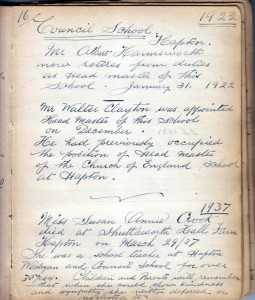 16 1922
Council School
Hapton.
Mr Albert Harmsworth
now retires from duties
as Head master of this
School. January 31. 1922
Mr Walter Clayton was appointed
Head Master of this School
on December.
He had previously occupied
the position of Head Master
of the Church of England School
at Hapton.
1937
Miss Susan Annie Crook
died at Shuttleworth Hall Farm
Hapton on March 29/37
She was a school teacher at Hapton
Wesleyan and Council School for over
30 years. Children and Parents will remember
that when she could show kindness
and sympathy she neither deferred or
neglected